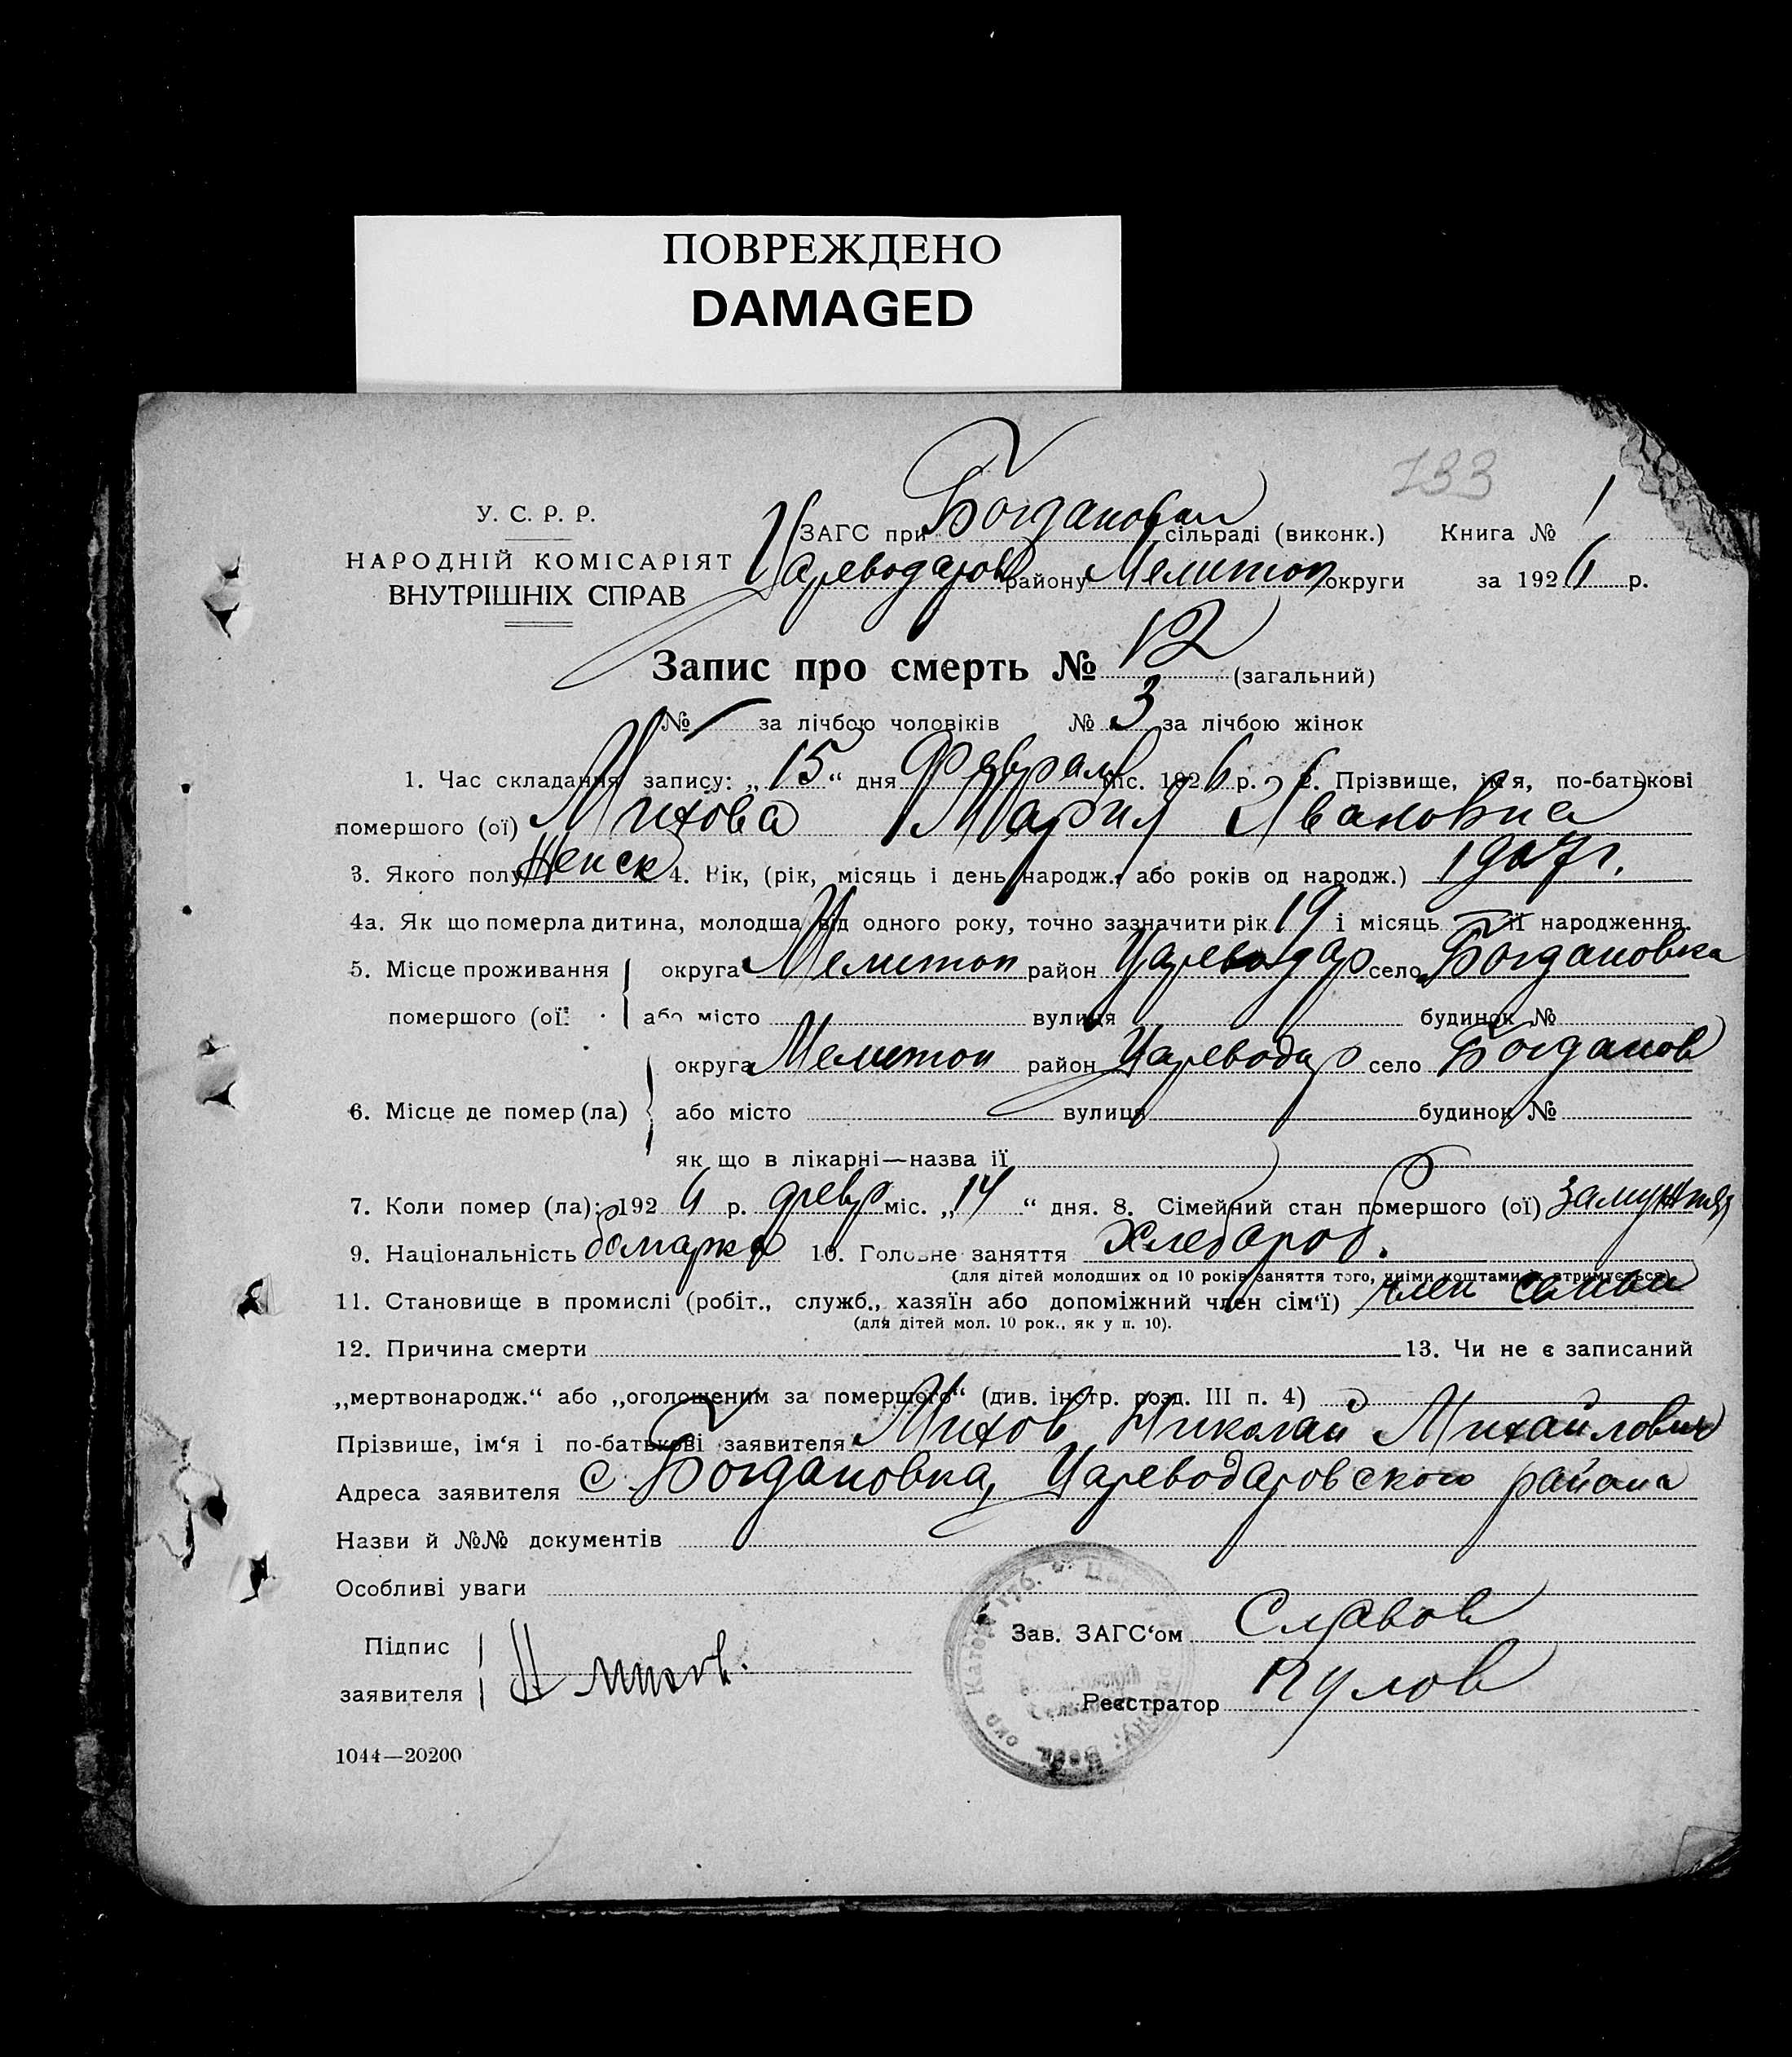 ПОВРЕЖДЕНО
DAMAGED
133
У. С. Р. Р.
НАРОДНІЙ КОМІСАРІЯТ
ВНУТРІШНІХ СПРАВ
ЗАГС при Богдановск сільраді (виконк.) Книга № 1
Цареводаров району Мелитоп округи за 1926 р.
Запис про смерть № 12 (загальний)
№ за лічбою чоловіків № 3 за лічбою жінок
1. Час складання запису: „15“ дня Февраля міс. 1926 р. 2. Прізвище, ім'я, по-батькові
помершого (ої) Михова Мария Ивановна
3. Якого полу Женск 4. Вік, (рік, місяць і день народж., або років од народж.) 1907 г.
4а. Як що померла дитина, молодша від одного року, точно зазначити рік 19 і місяць її народження.
5. Місце проживання округа Мелитоп район Цареводар село Богдановка
помершого (ої) або місто вулиця будинок №
округа Мелитоп район Цареводар село Богданов
6. Місце де помер (ла) або місто вулиця будинок №
як що в лікарні—назва її
7. Коли помер (ла): 1926 р. февр міс. „14“ дня. 8. Сімейний стан помершого (ої) замужняя
9. Національність болгарка 10. Головне заняття Хлебороб.
(для дітей молодших од 10 років заняття того, чиїми коштами їх втримується)
11. Становище в промислі (робіт., служб., хазяїн або допоміжний член сім'ї) член семьи
(для дітей мол. 10 рок., як у п. 10).
12. Причина смерти 13. Чи не є записаний
„мертвонародж.“ або „оголошеним за помершого“ (див. інстр. розд. III п. 4)
Прізвише, ім'я і по-батькові заявителя Михов Николай Михайлович
Адреса заявителя с. Богдановка, Цареводаровского района
Назви й №№ документів
Особливі уваги
Зав. ЗАГС'ом Славов
Підпис
заявителя Н Михов.
Реєстратор Кулов
1044—20200